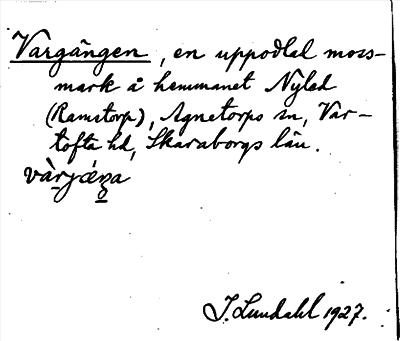 Vargängen, en uppodlad moss-
mark å hemmanet Nyled
(Ramstorp), Agnetorps sn, Var-
tofta hd, Skaraborgs län.
J. Lundahl 1927.